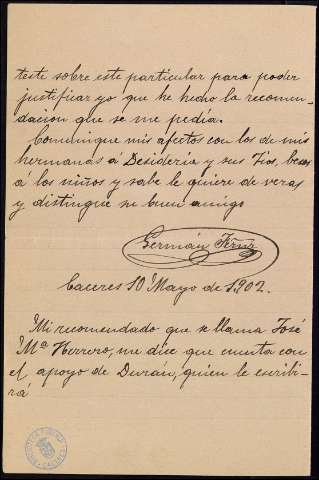 teste sobre este particular para poder
justificar yo que he hecho la recomen-
dación que se me pedía.
Comunique mis afectos con los de mis
hermanas á Desideria y sus Tios, besos
á los niños y sabe le quiere de veras
y distingue su buen amigo
Germán
Caceres 10 Mayo de 1902.
Mi recomendado que se llama José
Mª Herrero, me dice que cuenta con
el apoyo de Durán, quien le escribi-
rá